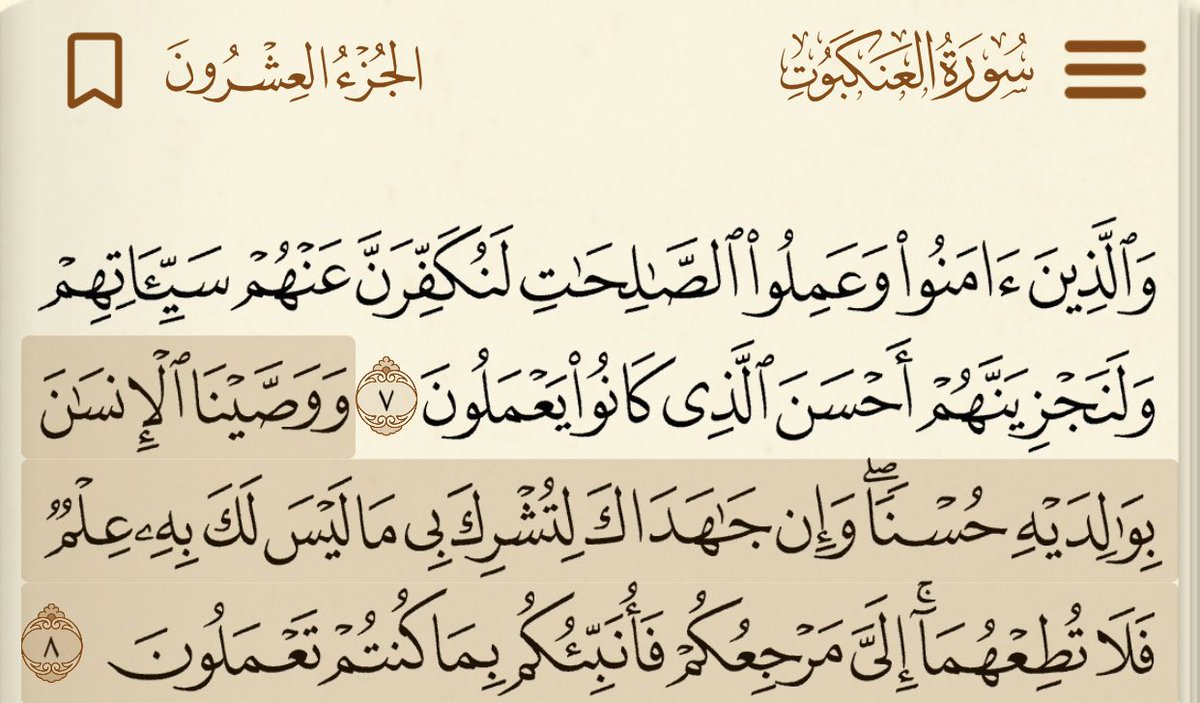 سُورَةُ العَنكَبُوتِ الجُزْءُ العِشْرُونَ
وَٱلَّذِينَ ءَامَنُوا۟ وَعَمِلُوا۟ ٱلصَّـٰلِحَـٰتِ لَنُكَفِّرَنَّ عَنْهُمْ سَيِّـَٔاتِهِمْ
وَلَنَجْزِيَنَّهُمْ أَحْسَنَ ٱلَّذِى كَانُوا۟ يَعْمَلُونَ ٧ وَوَصَّيْنَا ٱلْإِنسَـٰنَ
بِوَٰلِدَيْهِ حُسْنًا ۖ وَإِن جَـٰهَدَاكَ لِتُشْرِكَ بِى مَا لَيْسَ لَكَ بِهِۦ عِلْمٌ
فَلَا تُطِعْهُمَآ ۚ إِلَىَّ مَرْجِعُكُمْ فَأُنَبِّئُكُم بِمَا كُنتُمْ تَعْمَلُونَ ٨